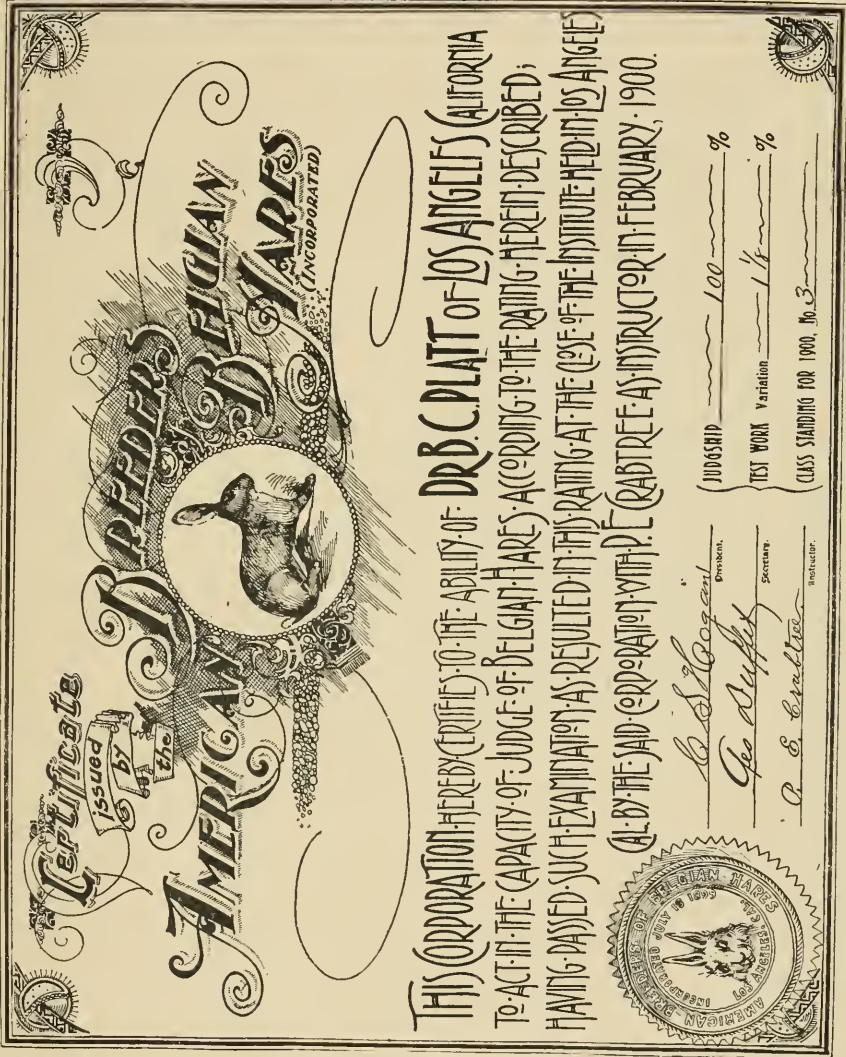 Certificate
issued
by
the
AMERICAN BREEDERS BELGIAN HARES
(INCORPORATED)
THIS CORPORATION·HEREBY·CERTIFIES·TO·THE·ABILITY·OF· DR B.C. PLATT OF·LOS ANGELES CALIFORNIA
TO·ACT·IN·THE·CAPACITY·OF·JUDGE·OF·BELGIAN·HARES·ACCORDING·TO·THE·RATING·HEREIN·DESCRIBED;
HAVING·PASSED·SUCH·EXAMINATION·AS·RESULTED·IN·THIS·RATING·AT·THE·CLOSE·OF·THE·INSTITUTE·HELD·IN·LOS ANGELES
CAL·BY·THE·SAID·CORPORATION·WITH·P.E CRABTREE·AS·INSTRUCTOR·IN·FEBRUARY, 1900.
President.
Geo Duffey
Secretary.
P. E. Crabtree
Instructor.
JUDGSHIP 100 %
TEST WORK Variation 1⅛ %
CLASS STANDING FOR 1900, No. 3
AMERICAN·BREEDERS·OF·BELGIAN·HARES
INCORPORATED JULY 19 1899
LOS ANGELES, CAL.